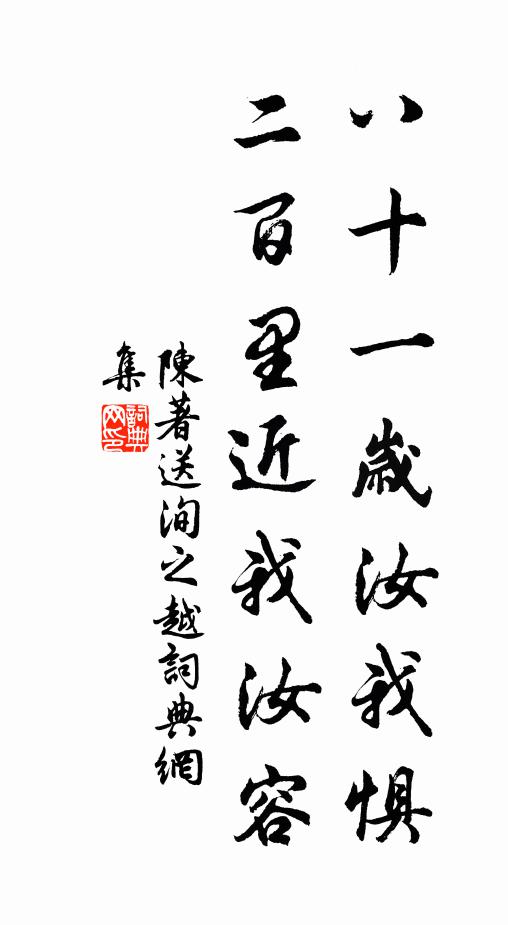 八十一歲汝我懼
二百里近我汝容
陳著送洵之越詞典網
集
詞典
网印